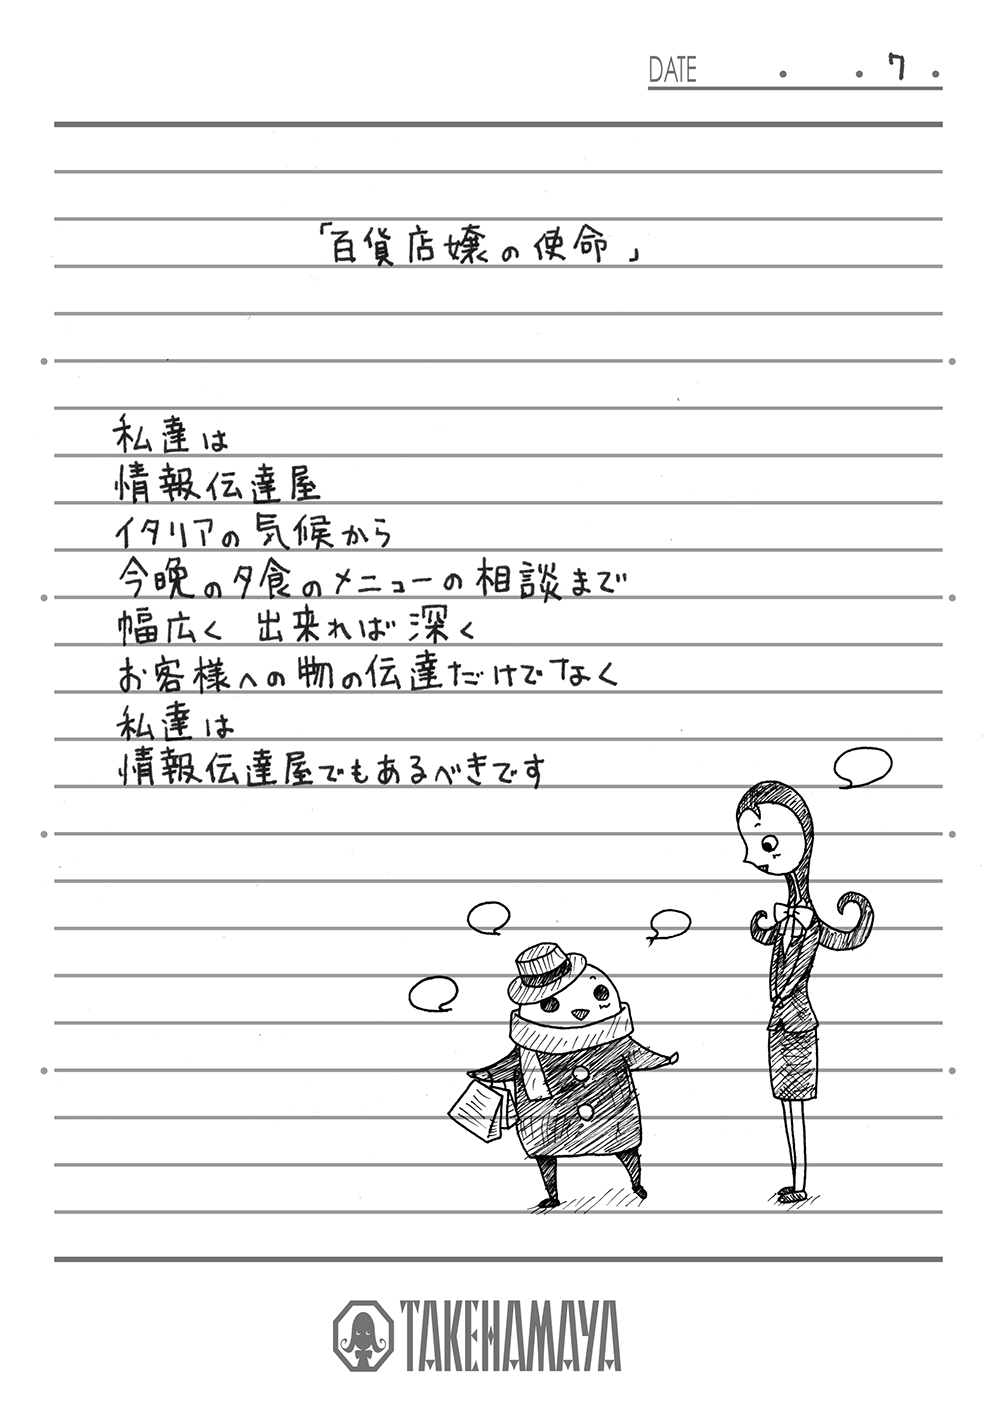 DATE . . 7 .
「百貨店嬢の使命」
私達は
情報伝達屋
イタリアの気候から
今晩の夕食のメニューの相談まで
幅広く 出来れば深く
お客様への物の伝達だけでなく
私達は
情報伝達屋でもあるべきです
TAKEHAMAYA